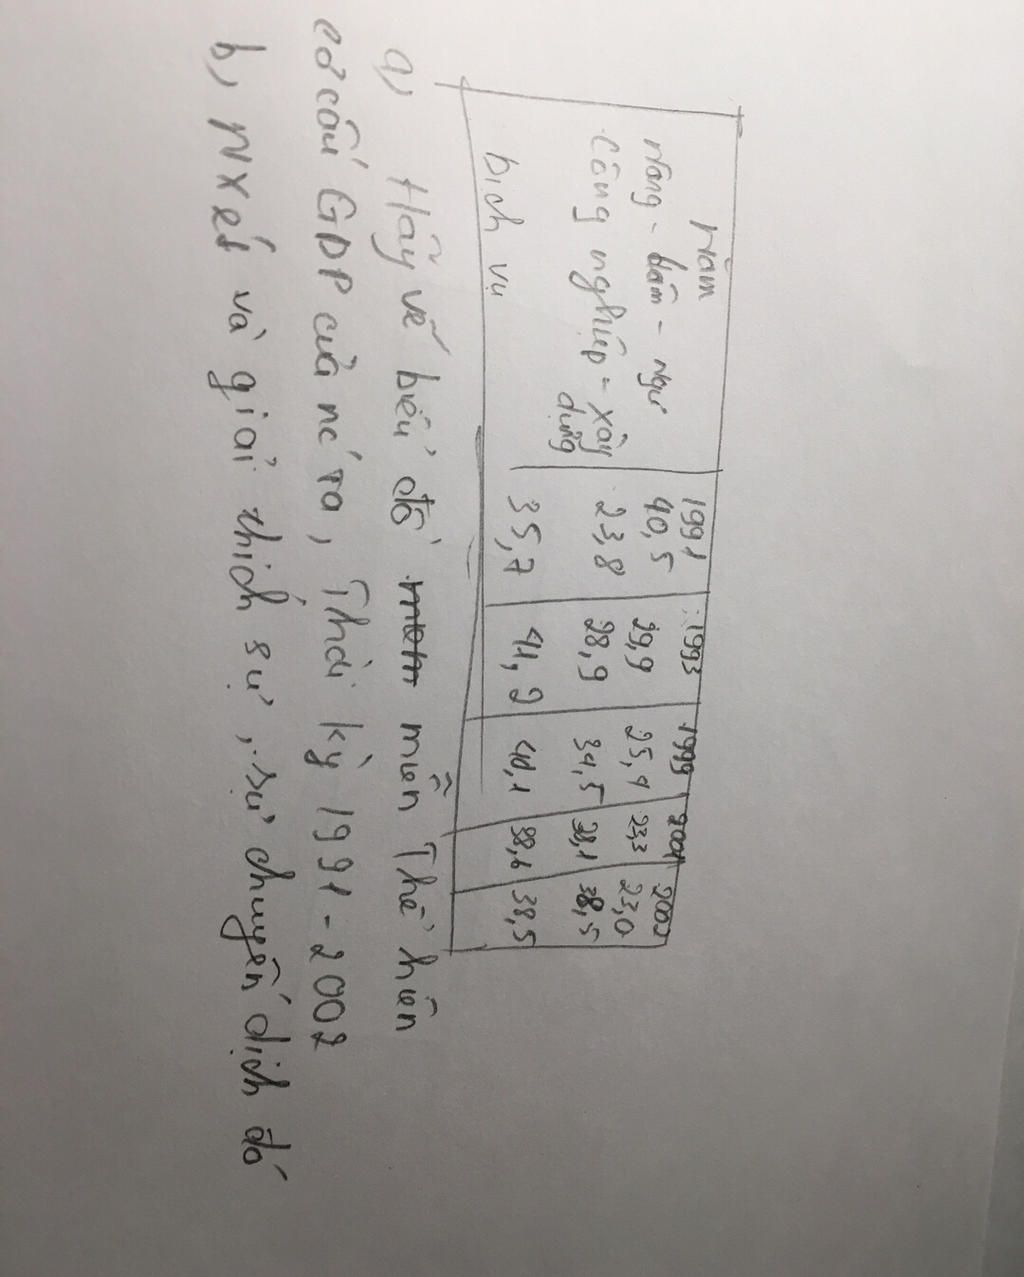 Năm 1991 1993 1999 2001 2002
Nông - Lâm - Ngư 40,5 29,9 25,4 23,3 23,0
Công nghiệp - xây dựng 23,8 28,9 34,5 38,1 38,5
Dịch vụ 35,7 41,2 40,1 38,6 38,5
a, Hãy vẽ biểu đồ miền Thể hiện
cơ cấu GDP của nc' ta, Thời kỳ 1991-2002
b, Nxét và giải thích sự, sự chuyển dịch đó